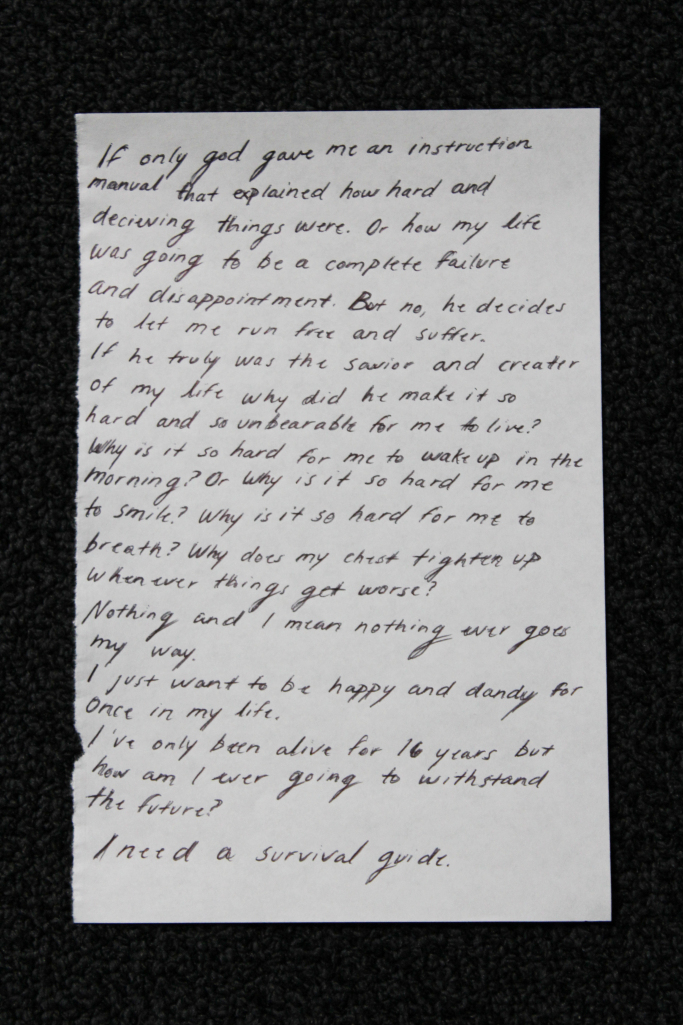 If only god gave me an instruction
manual that explained how hard and
decieving things were. Or how my life
was going to be a complete failure
and disappointment. But no, he decides
to let me run free and suffer.
If he truly was the savior and creater
of my life why did he make it so
hard and so unbearable for me to live?
Why is it so hard for me to wake up in the
morning? Or why is it so hard for me
to smile? Why is it so hard for me to
breath? Why does my chest tighten up
whenever things get worse?
Nothing and I mean nothing ever goes
my way.
I just want to be happy and dandy for
once in my life.
I've only been alive for 16 years but
how am I ever going to withstand
the future?
I need a survival guide.